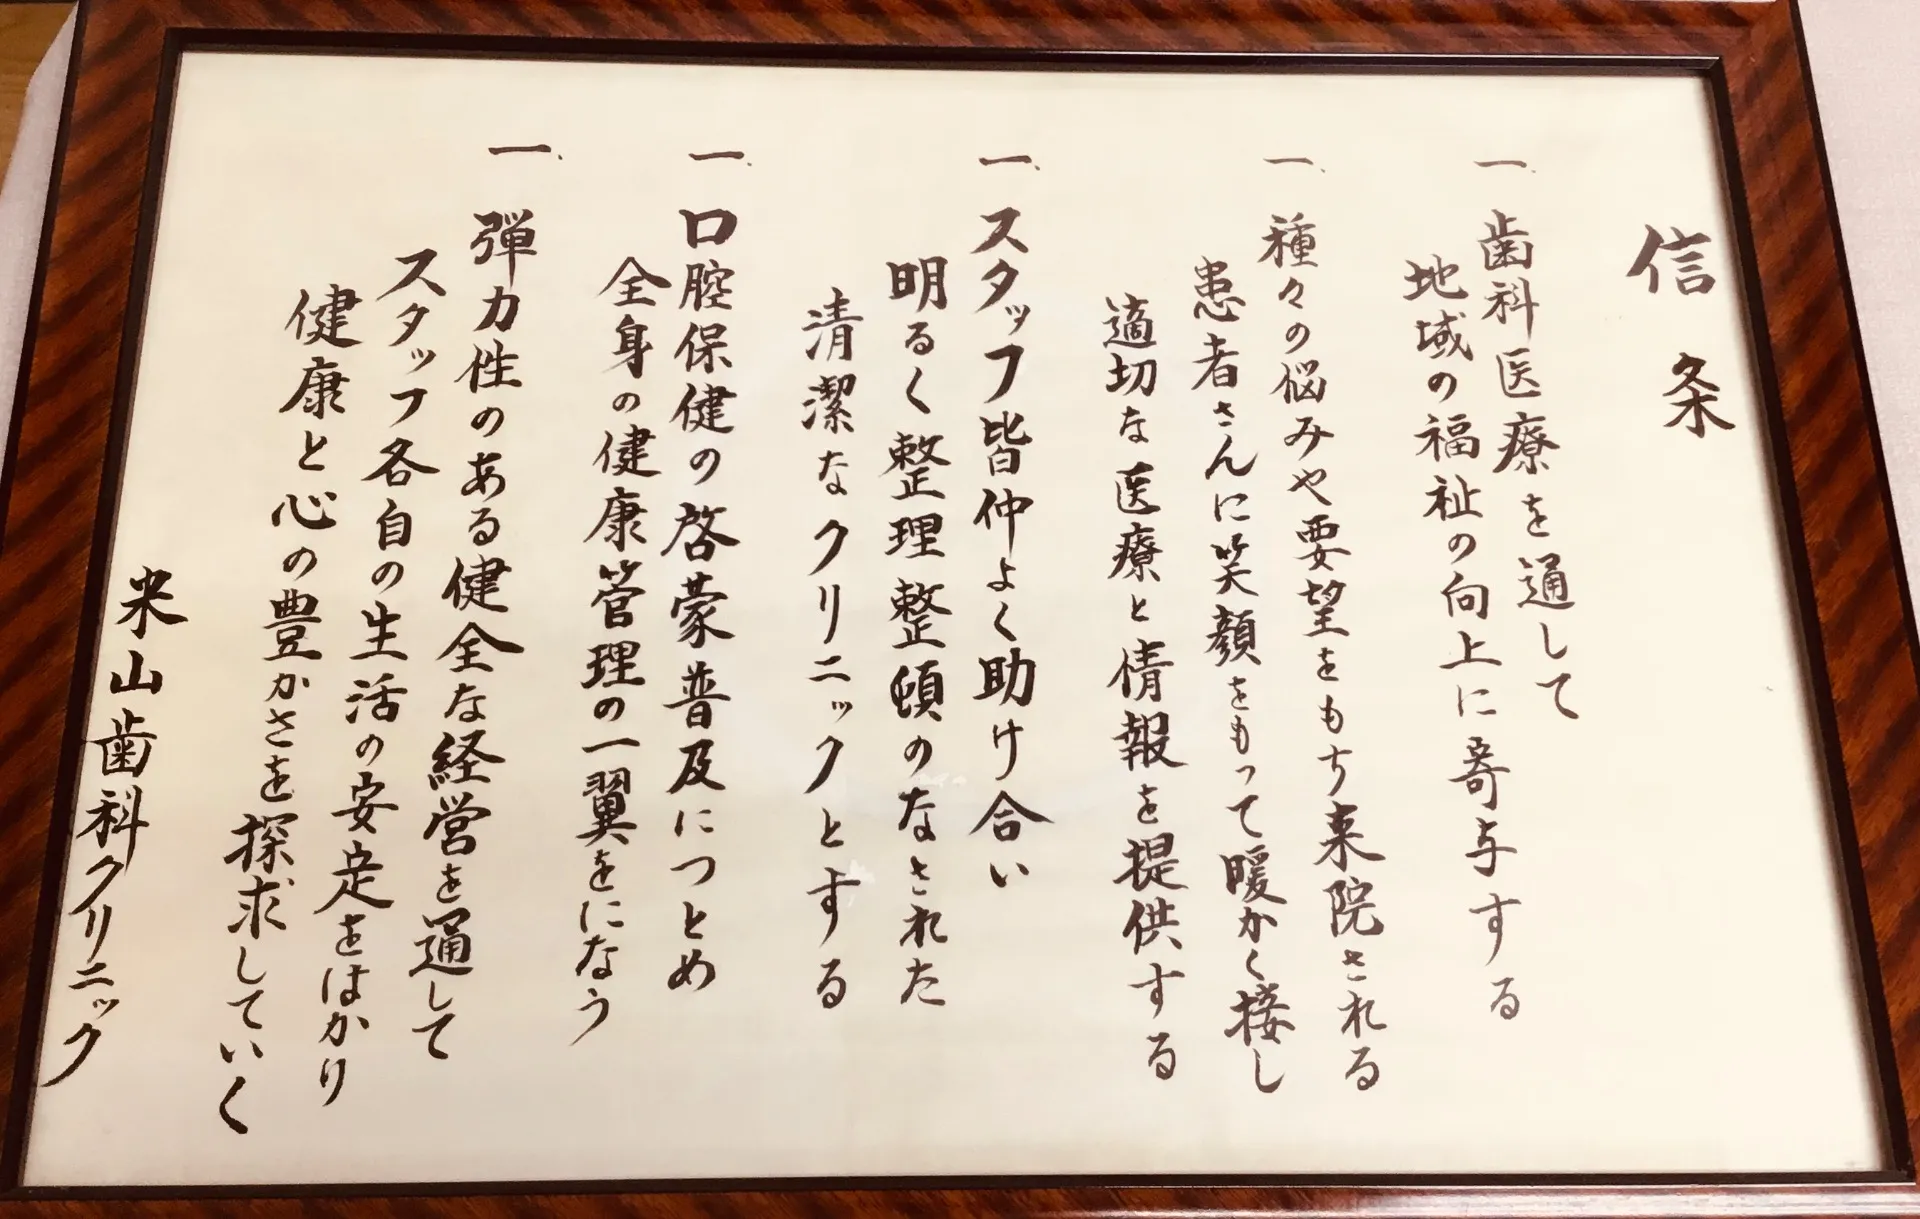 信条
一、歯科医療を通して
地域の福祉の向上に寄与する
一、種々の悩みや要望をもち来院される
患者さんに笑顔をもって暖かく接し
適切な医療と情報を提供する
一、スタッフ皆仲よく助け合い
明るく整理整頓のなされた
清潔なクリニックとする
一、口腔保健の啓蒙普及につとめ
全身の健康管理の一翼をになう
一、弾力性のある健全な経営を通して
スタッフ各自の生活の安定をはかり
健康と心の豊かさを探求していく
米山歯科クリニック